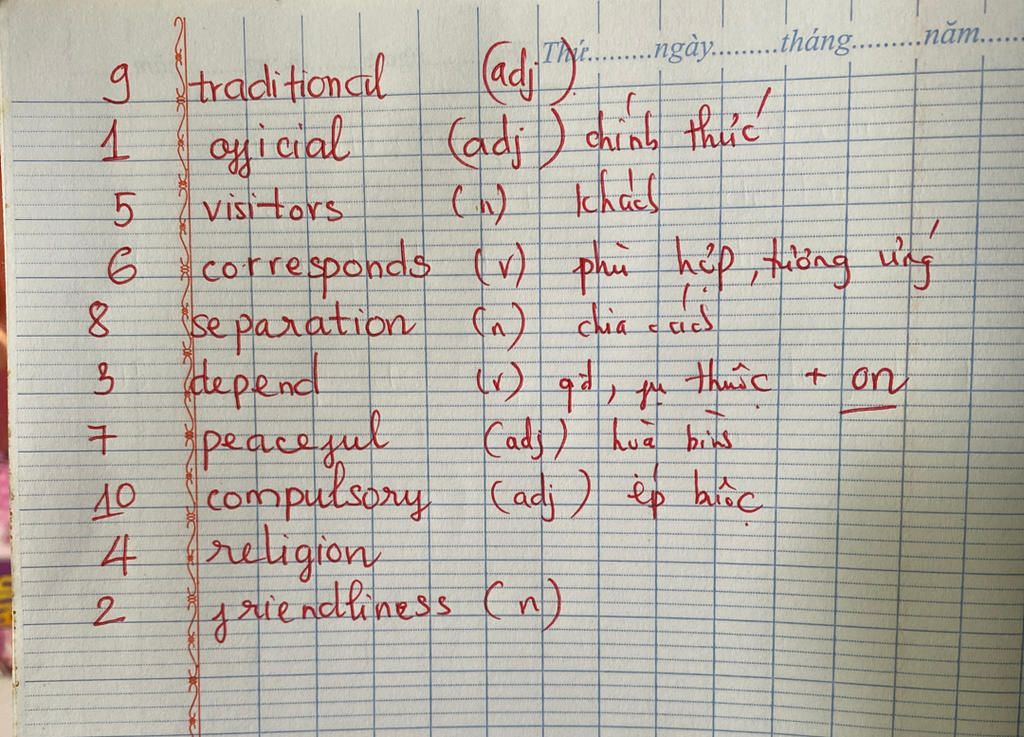 Thứ.........ngày.........tháng.........năm......
9 traditional (adj)
1 official (adj) chính thức
5 visitors (n) khách
6 corresponds (v) phù hợp, tương ứng
8 separation (n) chia cách
3 depend (v) thuộc + on
7 peaceful (adj) hoà bình
10 compulsory (adj) ép buộc
4 religion
2 friendliness (n)